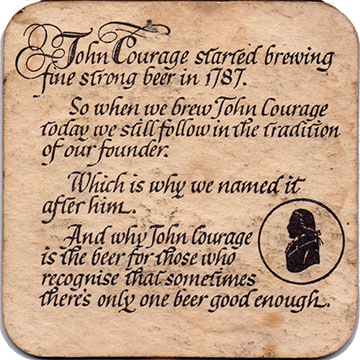 John Courage started brewing
fine strong beer in 1787.
So when we brew John Courage
today we still follow in the tradition
of our founder.
Which is why we named it
after him.
And why John Courage
is the beer for those who
recognise that sometimes
there's only one beer good enough.